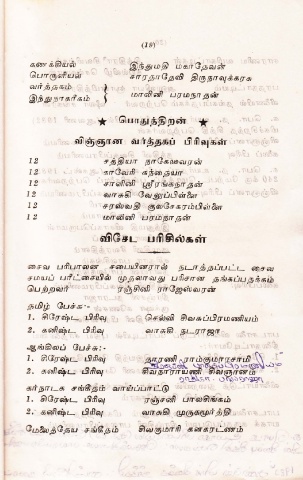 (19)
கணக்கியல் இந்துமதி மகாதேவன்
பொருளியல் சாரதாதேவி திருநாவுக்கரசு
வர்த்தகம்
இந்துநாகரிகம் } மாலினி பரமநாதன்
★ பொதுத்திறன் ★
விஞ்ஞான வர்த்தகப் பிரிவுகள்
12 சத்தியா நாகேஸ்வரன்
12 காவேரி கந்தையா
12 சாளினி ஸ்ரீரங்கநாதன்
12 வாசுகி வேலுப்பிள்ளை
12 சரஸ்வதி குலசேகரம்பிள்ளை
12 மாலினி பரமநாதன்
விசேட பரிசில்கள்
சைவ பரிபாலன சபையினரால் நடாத்தப்பட்ட சைவ
சமயப் பரீட்சையில் முதலாவது பரிசான தங்கப்பதக்கம்
பெற்றவர் ரஞ்சினி ராஜேஸ்வரன்
தமிழ் பேச்சு:-
1. சிரேஷ்ட பிரிவு செல்வி சிவசுப்பிரமணியம்
2. கனிஷ்ட பிரிவு வாசுகி நடராஜா
ஆங்கிலப் பேச்சு:-
1. சிரேஷ்ட பிரிவு தாரணி ராம்குமாரசாமி
2. கனிஷ்ட பிரிவு சிவநாராயணி சிவஞானம்
கர்நாடக சங்கீதம் வாய்ப்பாட்டு
1. சிரேஷ்ட பிரிவு ரஞ்சனி பாலசிங்கம்
2. கனிஷ்ட பிரிவு வாசுகி முருகமூர்த்தி
மேலைத்தேய சங்கீதம் சிவகுமாரி கனகரட்ணம்